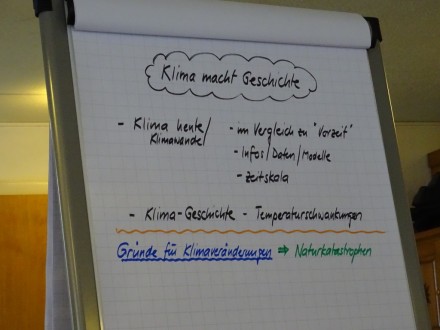 Klima macht Geschichte
- Klima heute/ - im Vergleich zu "Vorzeit"
Klimawandel - Infos/Daten/Modelle
- Zeitskala
- Klima-Geschichte - Temperaturschwankungen
Gründe für Klimaveränderungen ⇒ Naturkatastrophen